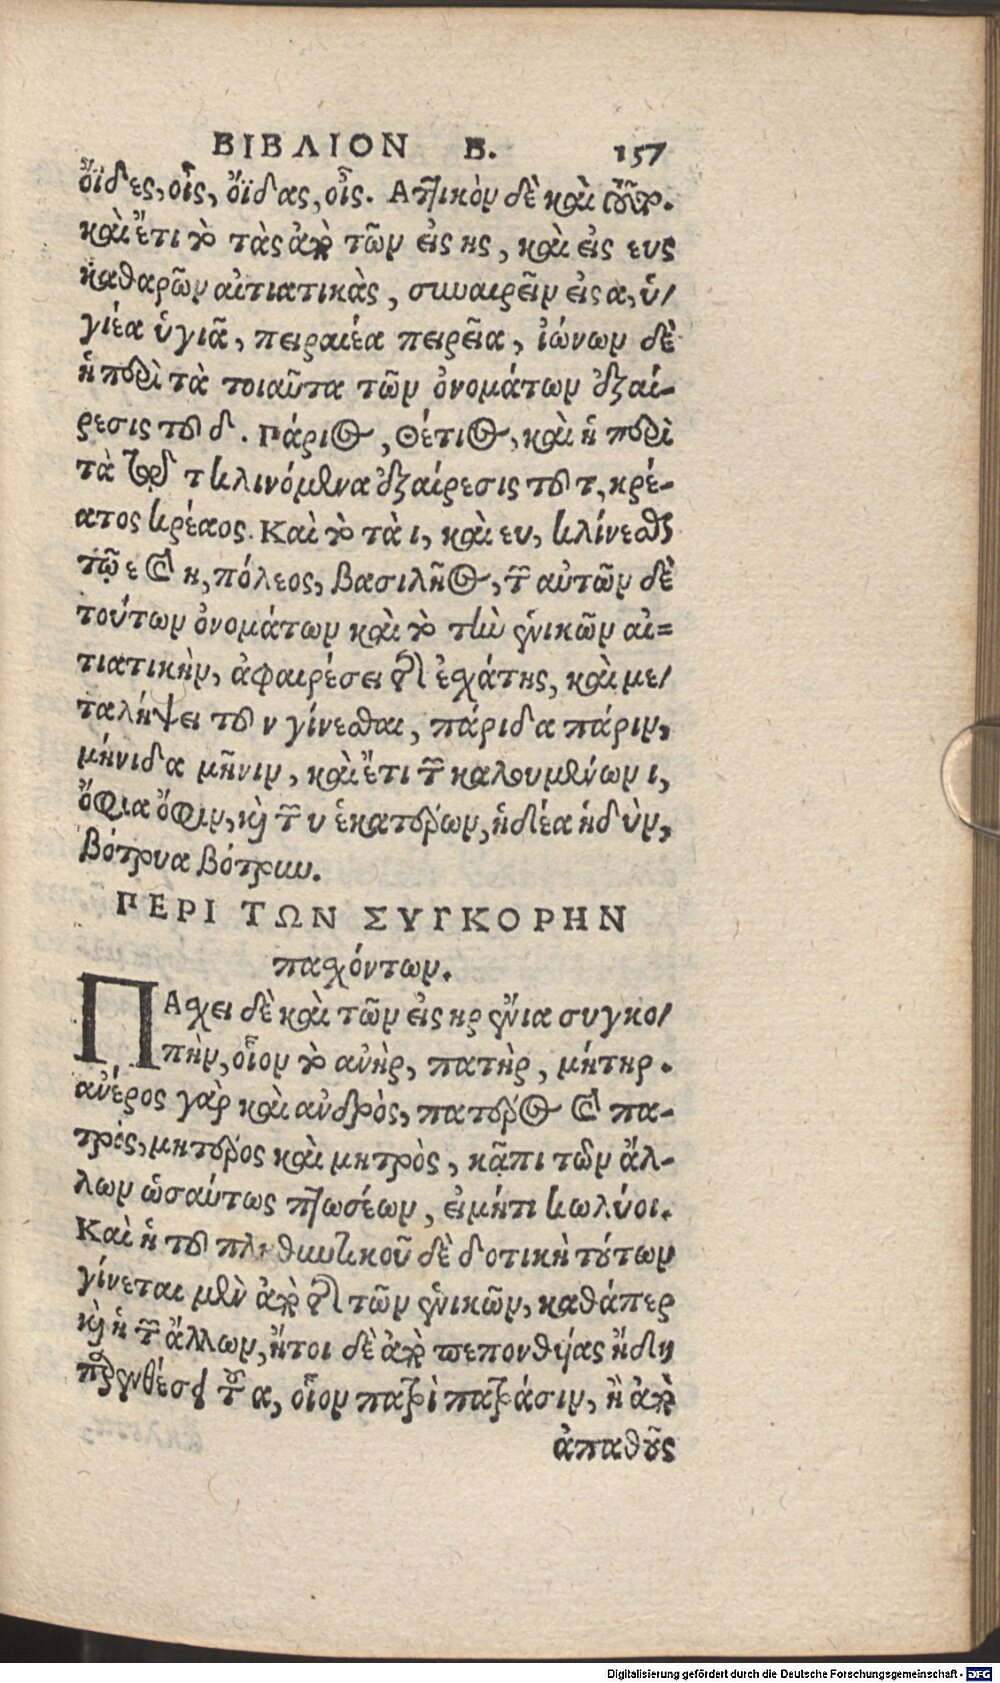 ΒΙΒΛΙΟΝ Β. 157
ὄϊδες, οἶς, ὄϊδας, οἶς. Ἀττικὸν δὲ καὶ
καὶ ἔτι τὸ τὰς ἀπὸ τῶν εἰς ης, καὶ εἰς ευς
καθαρῶν αἰτιατικὰς, συναιρεῖν εἰς α, ὑ/
γιέα ὑγιᾶ, πειραιέα πειρεᾶ, ἰώνων δὲ
ἡ περὶ τὰ τοιαῦτα τῶν ὀνομάτων ἐξαί-
ρεσις τοῦ δ. Πάριος, Θέτιος, καὶ ἡ περὶ
τὰ διὰ τ κλινόμενα ἐξαίρεσις τοῦ τ, κρέ-
ατος κρέαος. Καὶ τὸ τὰ ι, καὶ ευ, κλίνεσθαι
τῷ ε καὶ η, πόλεος, βασιλῆος, τῶν αὐτῶν δὲ
τούτων ὀνομάτων καὶ τὸ τὴν ἑνικῶν αἰ=
τιατικὴν, ἀφαιρέσει τῆς ἐσχάτης, καὶ με/
ταλήψει τοῦ ν γίνεσθαι, πάριδα πάριν,
μήνιδα μῆνιν, καὶ ἔτι τῶν καλουμένων ι,
ὄφια ὄφιν, καὶ τῶν υ ἑκατέρων, ἡδέα ἡδὺν,
βότρυα βότρυν.
ΠΕΡΙ ΤΩΝ ΣΥΓΚΟΡΗΝ
πασχόντων.
ΠΑσχει δὲ καὶ τῶν εἰς ηρ ἔνια συγκο/
πὴν, οἷον τὸ ἀνὴρ, πατὴρ, μήτηρ.
ἀνέρος γὰρ καὶ ἀνδρὸς, πατέρος καὶ πα-
τρός, μητέρος καὶ μητρὸς, κᾀπι τῶν ἄλ-
λων ὡσαύτως πτώσέων, εἰ μήτι κωλύοι.
Καὶ ἡ τοῦ πληθυντικοῦ δὲ δοτικὴ τούτων
γίνεται μὲν ἀπὸ τῆς τῶν ἑνικῶν, καθάπερ
καὶ ἡ τῶν ἄλλων, ἤτοι δὲ ἀπὸ πεπονθυίας ἤδη
προσθέσει τοῦ α, οἷον πατρὶ πατράσιν, ἢ ἀπὸ
ἀπαθοῦς
Digitalisierung gefördert durch die Deutsche Forschungsgemeinschaft - DFG